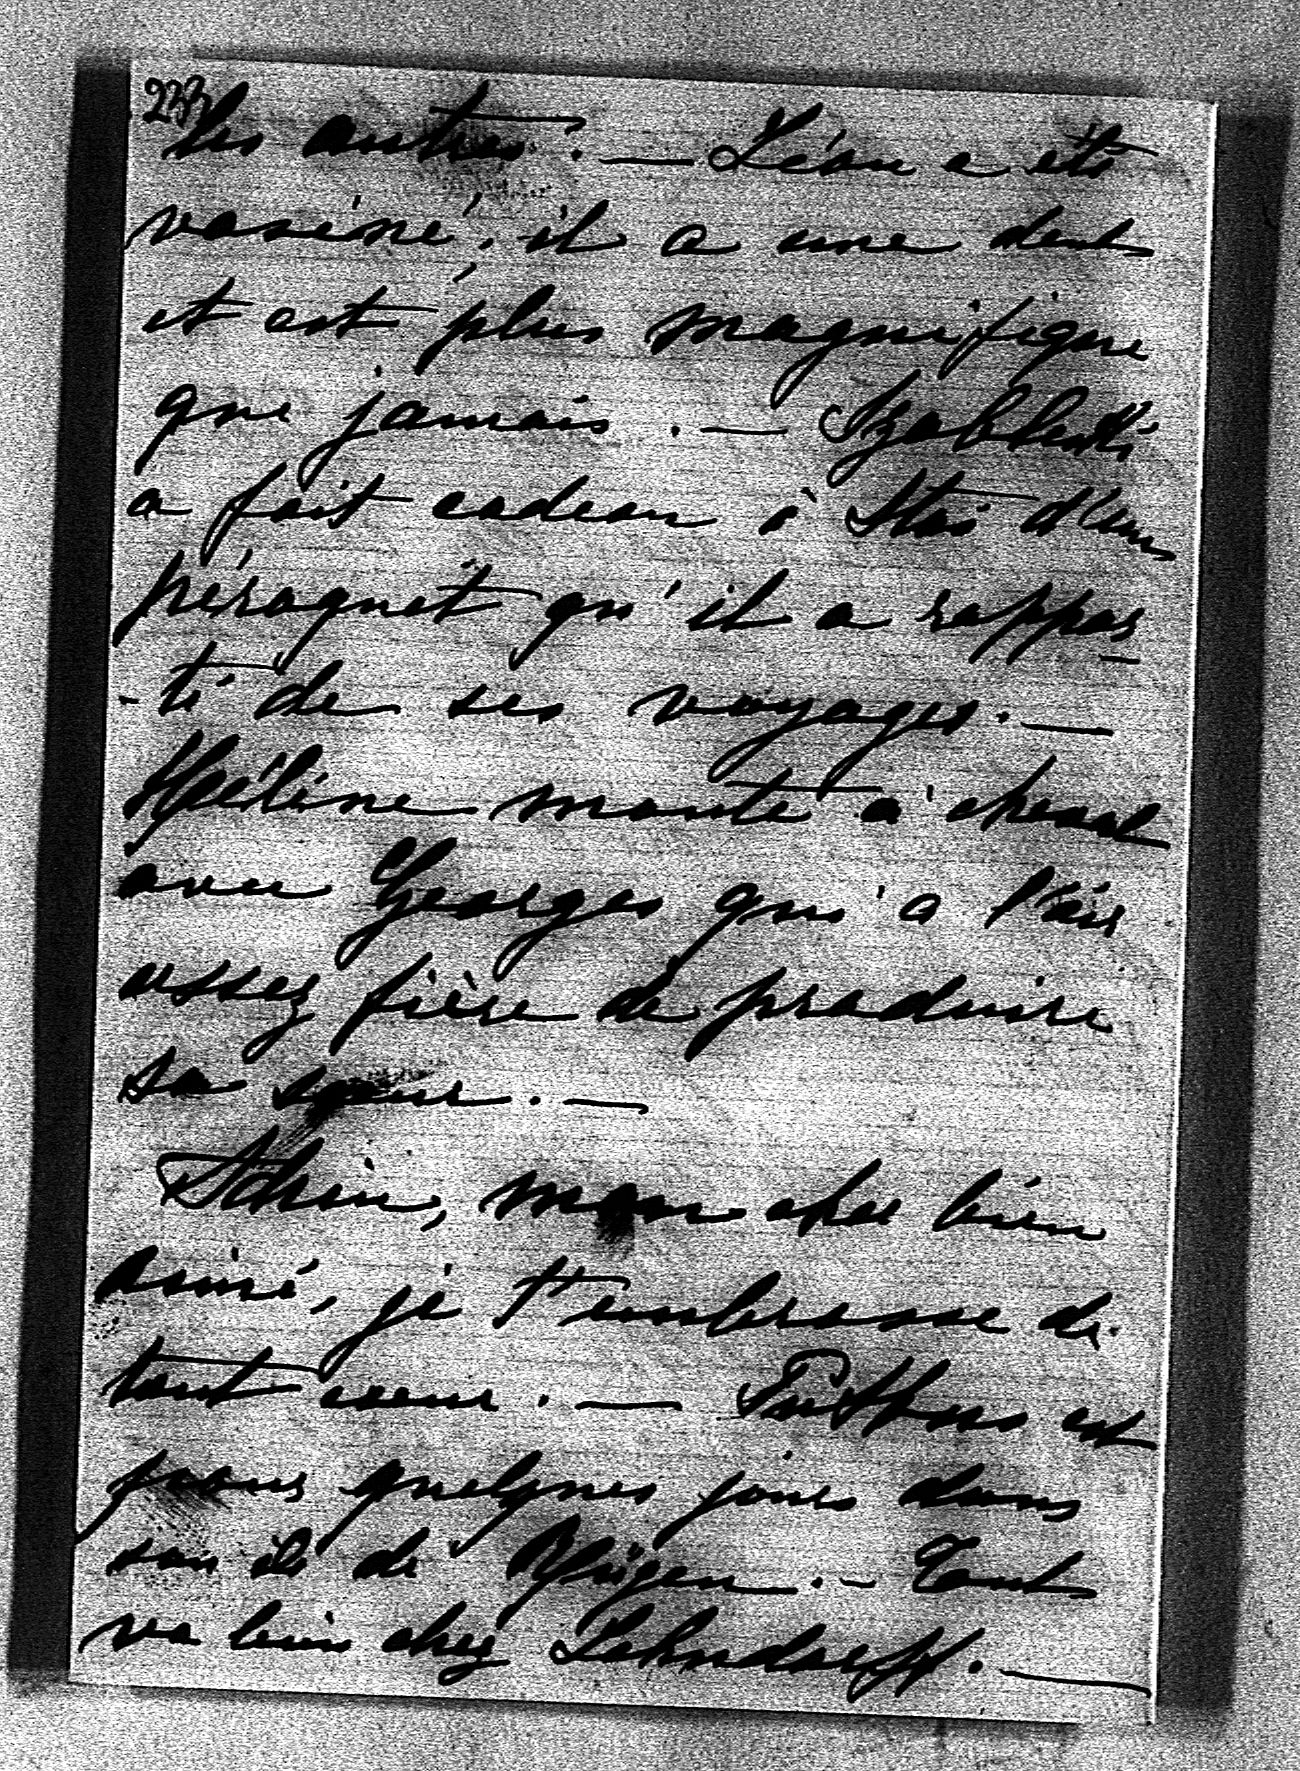 233
les autres. — Léon a été
vaxiné, il a une dent
et est plus magnifique
que jamais. — Szablewski
a fait cadeau à Stas d'un
péroquet qu'il a rappor-
-té de ses voyages. —
Hélène monte à cheval
avec Georges qui a l'air
assez fière de produire
sa soeur. —
Adieu, mon cher bien
aimé, je t'embrasse de
tout coeur. — Puttbus est
pour quelques jours dans
son île de Rügen. — Tout
va bien chez Lehndorff. —